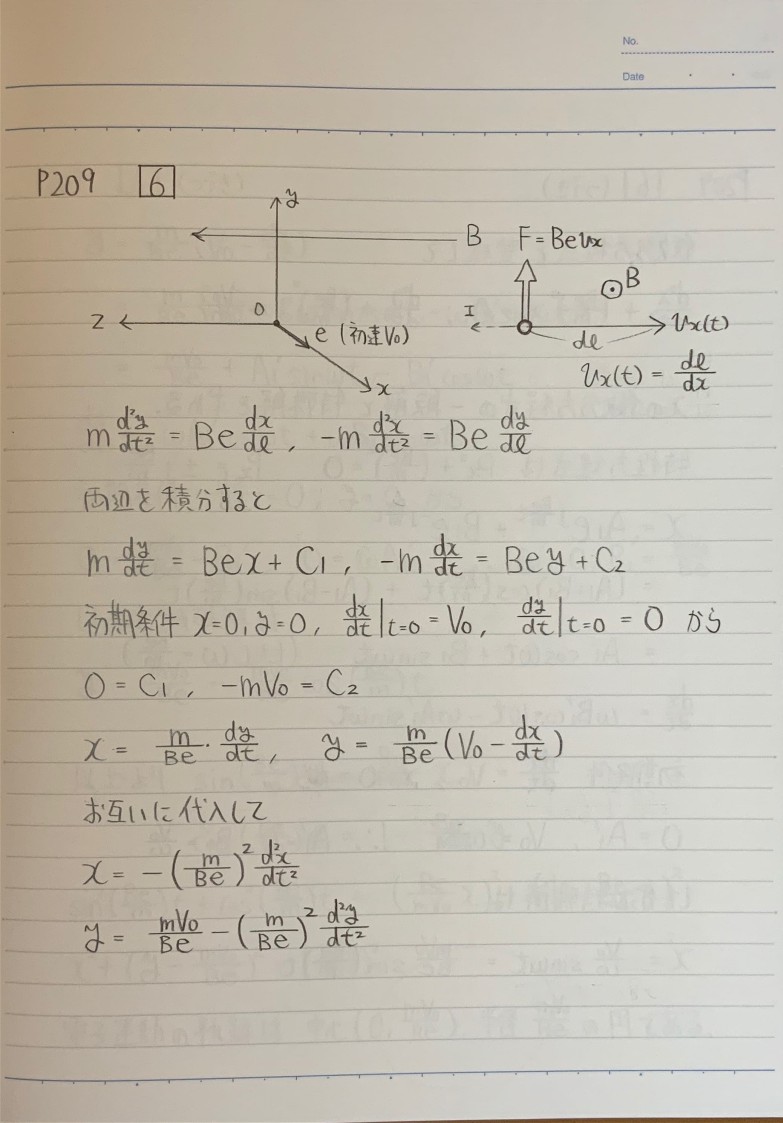 No.
Date
P209 6
y
B F = Bevx
B
Z O I
e (初速V₀) dl vx(t)
x vx(t) = dl/dx
m d²y/dt² = Be dx/dl , -m d²x/dt² = Be dy/dl
両辺を積分すると
m dy/dt = Bex + C₁ , -m dx/dt = Bey + C₂
初期条件 x=0, y=0, dx/dt|t=0 = V₀, dy/dt|t=0 = 0 から
0 = C₁ , -mV₀ = C₂
x = m/Be · dy/dt , y = m/Be (V₀ - dx/dt)
お互いに代入して
x = -(m/Be)² d²x/dt²
y = mV₀/Be - (m/Be)² d²y/dt²